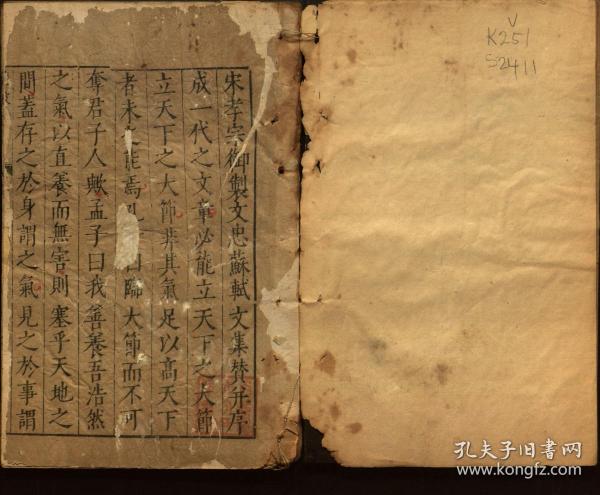 宋孝宗御製文忠蘇軾文集賛并序
成一代之文章必能立天下之大節
立天下之大節非其氣足以高天下
者未能焉孔曰臨大節而不可
奪君子人歟孟子曰我善養吾浩然
之氣以直養而無害則塞乎天地之
間蓋存之於身謂之氣見之於事謂
V
K251
S2411
孔夫子旧书网
www.kongfz.com